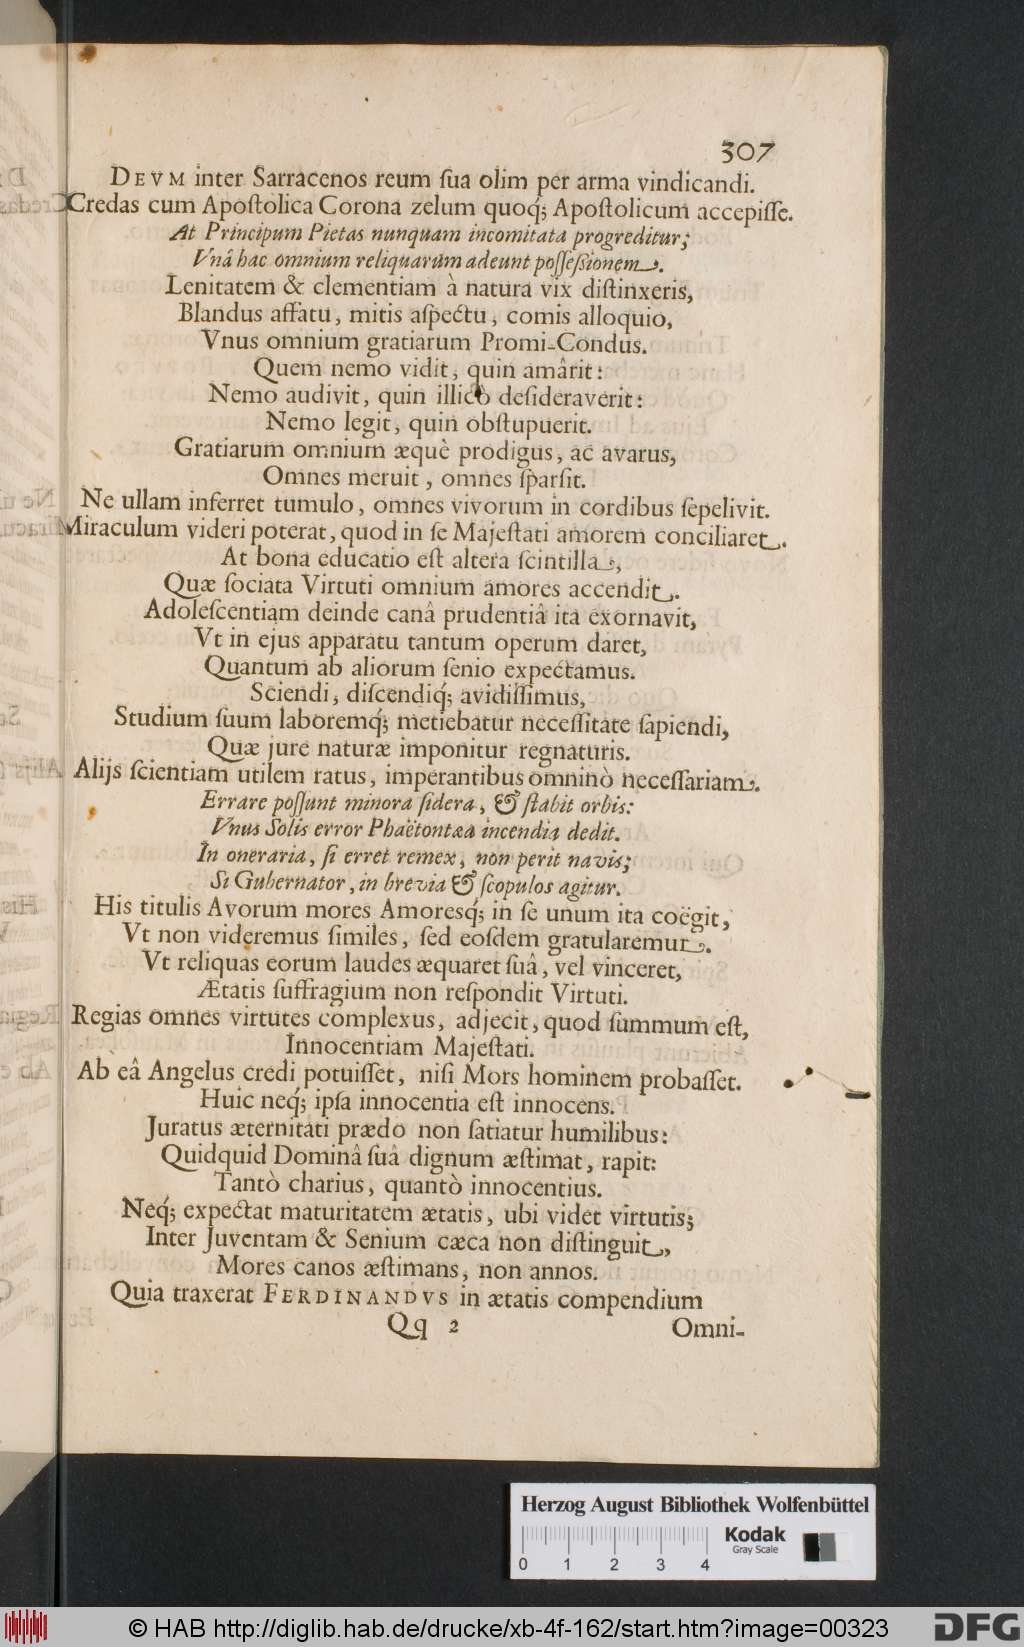 307
DEVM inter Sarracenos reum ſua olim per arma vindicandi.
Credas cum Apoſtolica Corona zelum quoq́; Apoſtolicum accepiſſe.
At Principum Pietas nunquam incomitata progreditur;
Vnâ hac omnium reliquarum adeunt poſſeſsionem.
Lenitatem & clementiam à natura vix diſtinxeris,
Blandus affatu, mitis aſpectu, comis alloquio,
Vnus omnium gratiarum Promi-Condus.
Quem nemo vidit, quin amârit:
Nemo audivit, quin illicò deſideraverit:
Nemo legit, quin obſtupuerit.
Gratiarum omnium æquè prodigus, ac avarus,
Omnes meruit, omnes ſparſit.
Ne ullam inferret tumulo, omnes vivorum in cordibus ſepelivit.
Miraculum videri poterat, quod in ſe Majeſtati amorem conciliaret.
At bona educatio eſt altera ſcintilla,
Quæ ſociata Virtuti omnium amores accendit.
Adoleſcentiam deinde canâ prudentiâ ita exornavit,
Vt in ejus apparatu tantum operum daret,
Quantum ab aliorum ſenio expectamus.
Sciendi, diſcendiq́; avidiſſimus,
Studium ſuum laboremq́; metiebatur neceſſitate ſapiendi,
Quæ jure naturæ imponitur regnaturis.
Alijs ſcientiam utilem ratus, imperantibus omninò neceſſariam.
Errare poſſunt minora ſidera, & ſtabit orbis:
Vnus Solis error Phaëtontæa incendia dedit.
In oneraria, ſi erret remex, non perit navis;
Si Gubernator, in brevia & ſcopulos agitur.
His titulis Avorum mores Amoresq́; in ſe unum ita coëgit,
Vt non videremus ſimiles, ſed eoſdem gratularemur.
Vt reliquas eorum laudes æquaret ſuâ, vel vinceret,
Ætatis ſuffragium non reſpondit Virtuti.
Regias omnes virtutes complexus, adjecit, quod ſummum eſt,
Innocentiam Majeſtati.
Ab eâ Angelus credi potuiſſet, niſi Mors hominem probaſſet.
Huic neq́; ipſa innocentia eſt innocens.
Juratus æternitati prædo non ſatiatur humilibus:
Quidquid Dominâ ſuâ dignum æſtimat, rapit:
Tantò charius, quantò innocentius.
Neq́; expectat maturitatem ætatis, ubi videt virtutis;
Inter Juventam & Senium cæca non diſtinguit,
Mores canos æſtimans, non annos.
Quia traxerat FERDINANDVS in ætatis compendium
Qq 2 Omni-
Herzog August Bibliothek Wolfenbüttel
Kodak
Gray Scale
0 1 2 3 4
© HAB http://diglib.hab.de/drucke/xb-4f-162/start.htm?image=00323
DFG